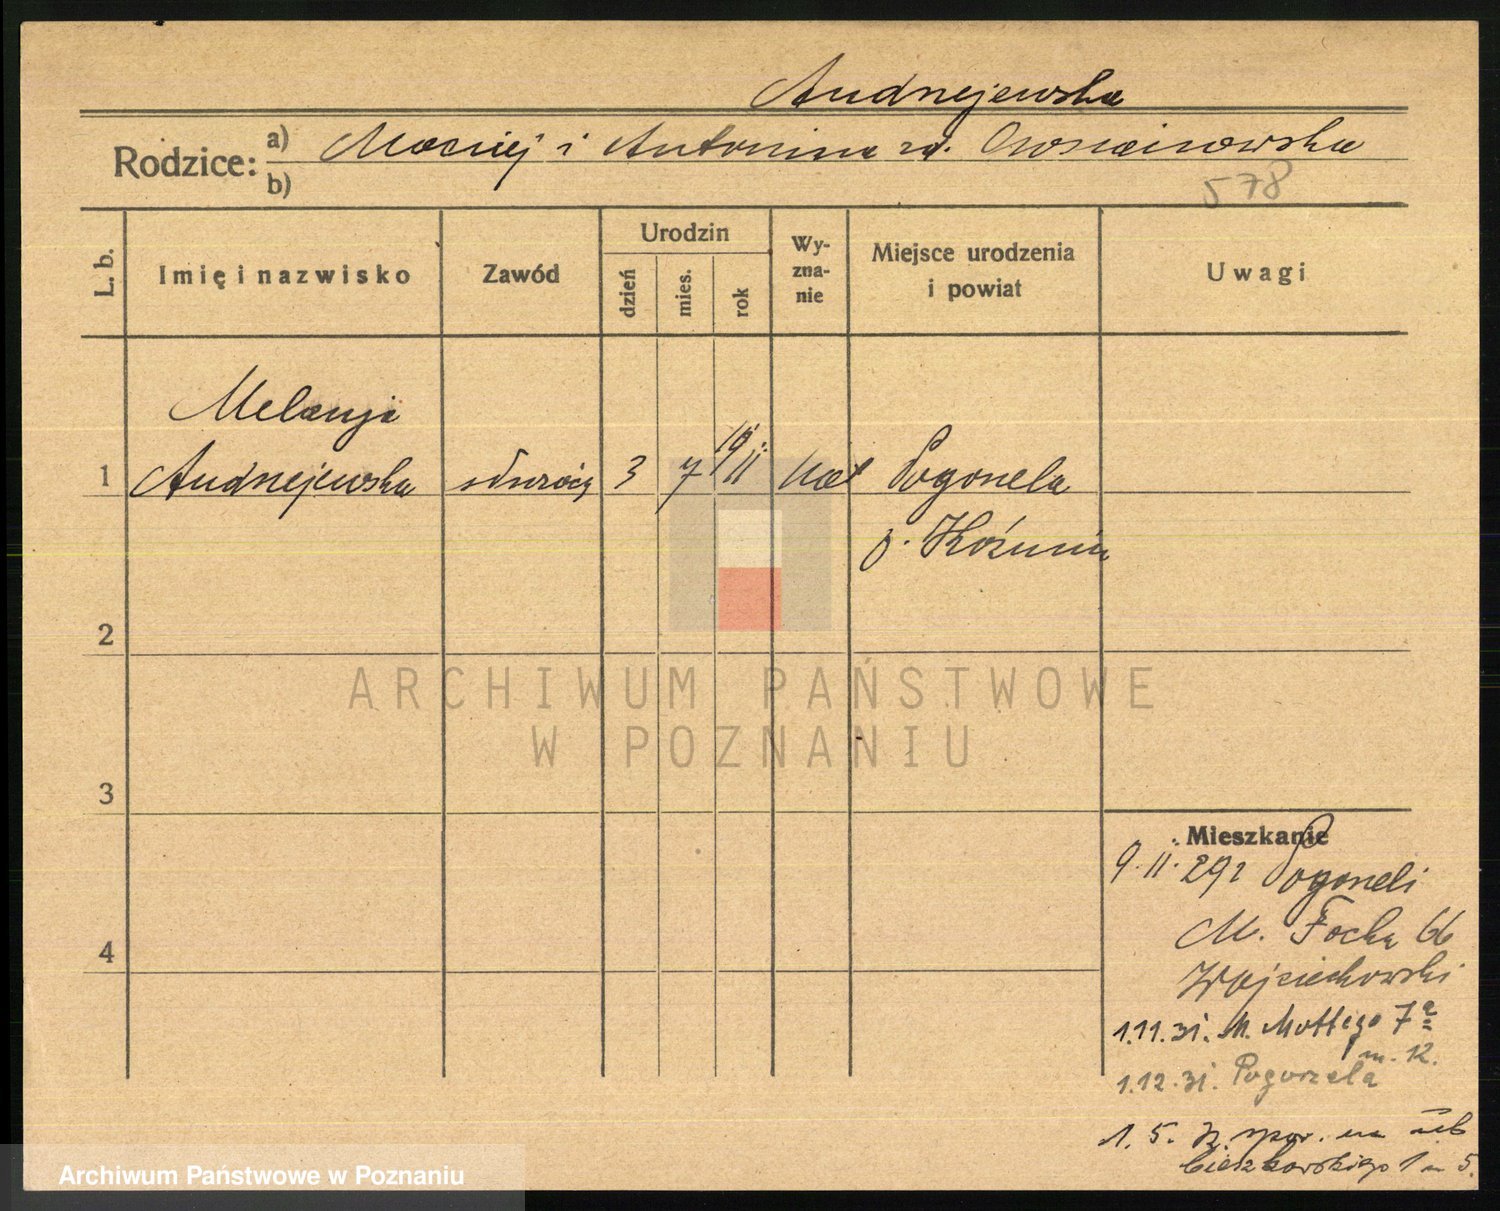 Andrzejewska
Rodzice: a) Maciej i Antonina zd.
b)
578
L. b.
Imię i nazwisko
Zawód
Urodzin
dzień
mies.
rok
Wy-
zna-
nie
Miejsce urodzenia
i powiat
Uwagi
Melanja
1 Andrzejewska służąca 3 7 1911 kat Pogorzela
p. Koźmin
2
ARCHIWUM PAŃSTWOWE
W POZNANIU
3
4
Mieszkanie
9.11.29 z Pogorzeli
M. Focha 66
Wojciechowski
1.11.31. M. Mottego 7a
m. 12.
1.12.31. Pogorzela
1. 5.
Cieszkowskiego 1 m 5.
Archiwum Państwowe w Poznaniu